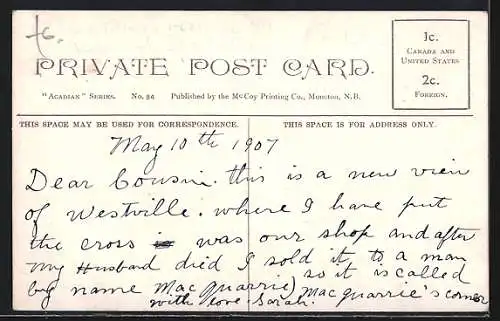 1c.
CANADA AND
UNITED STATES
2c.
FOREIGN.
PRIVATE POST CARD.
"ACADIAN" SERIES. No. 94 Published by the McCoy Printing Co., Moncton, N.B.
THIS SPACE MAY BE USED FOR CORRESPONDENCE. THIS SPACE IS FOR ADDRESS ONLY.
May 10th 1907
Dear Cousin. this is a new view
of Westville. where I have put
the cross was our shop and after
my Husband died I sold it to a man
by name MacQuarrie so it is called
with love Sarah. MacQuarrie's corner